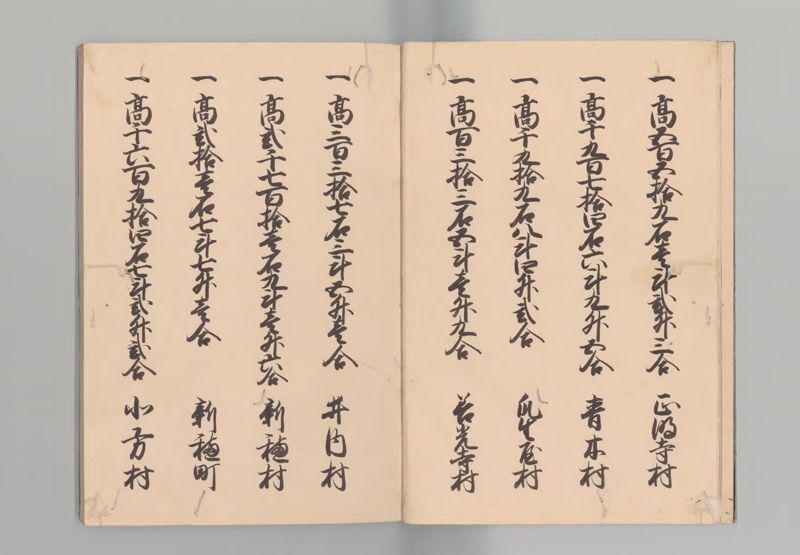 一高五百五拾九石壱斗弐升三合 正明寺村
一高千九百七拾四石六斗九升五合 青木村
一高千九拾九石八斗四升弐合 瓜生屋村
一高百三拾三石五斗壱升九合 若光寺村
一高三百三拾七石三斗五升壱合 井内村
一高弐千七百拾壱石九斗壱升六合 新穂村
一高弐拾壱石七斗七升壱合 新穂町
一高千六百九拾四石七斗弐升弐合 村